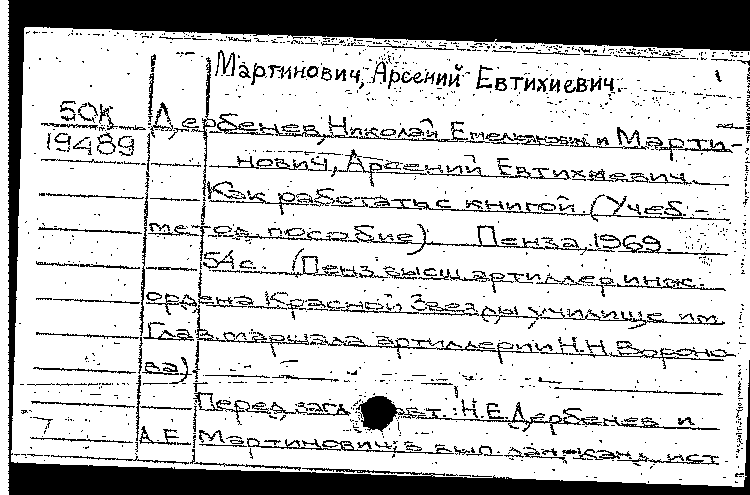 Мартинович, Арсений Евтихиевич. 1
50К Дербенев, Николай Емельянович и Марти-
19489 нович, Арсений Евтихиевич.
Как работать с книгой. (Учеб.-
метод. пособие). Пенза, 1969.
54с. (Пенз. высш. артиллер. инж.
ордена Красной Звезды училище им.
Глав. маршала артиллерии Н.Н. Вороно
ва)
Перед загл. авт.: Н.Е. Дербенев и
А.Е. Мартинович, в вып. дан.: канд. ист